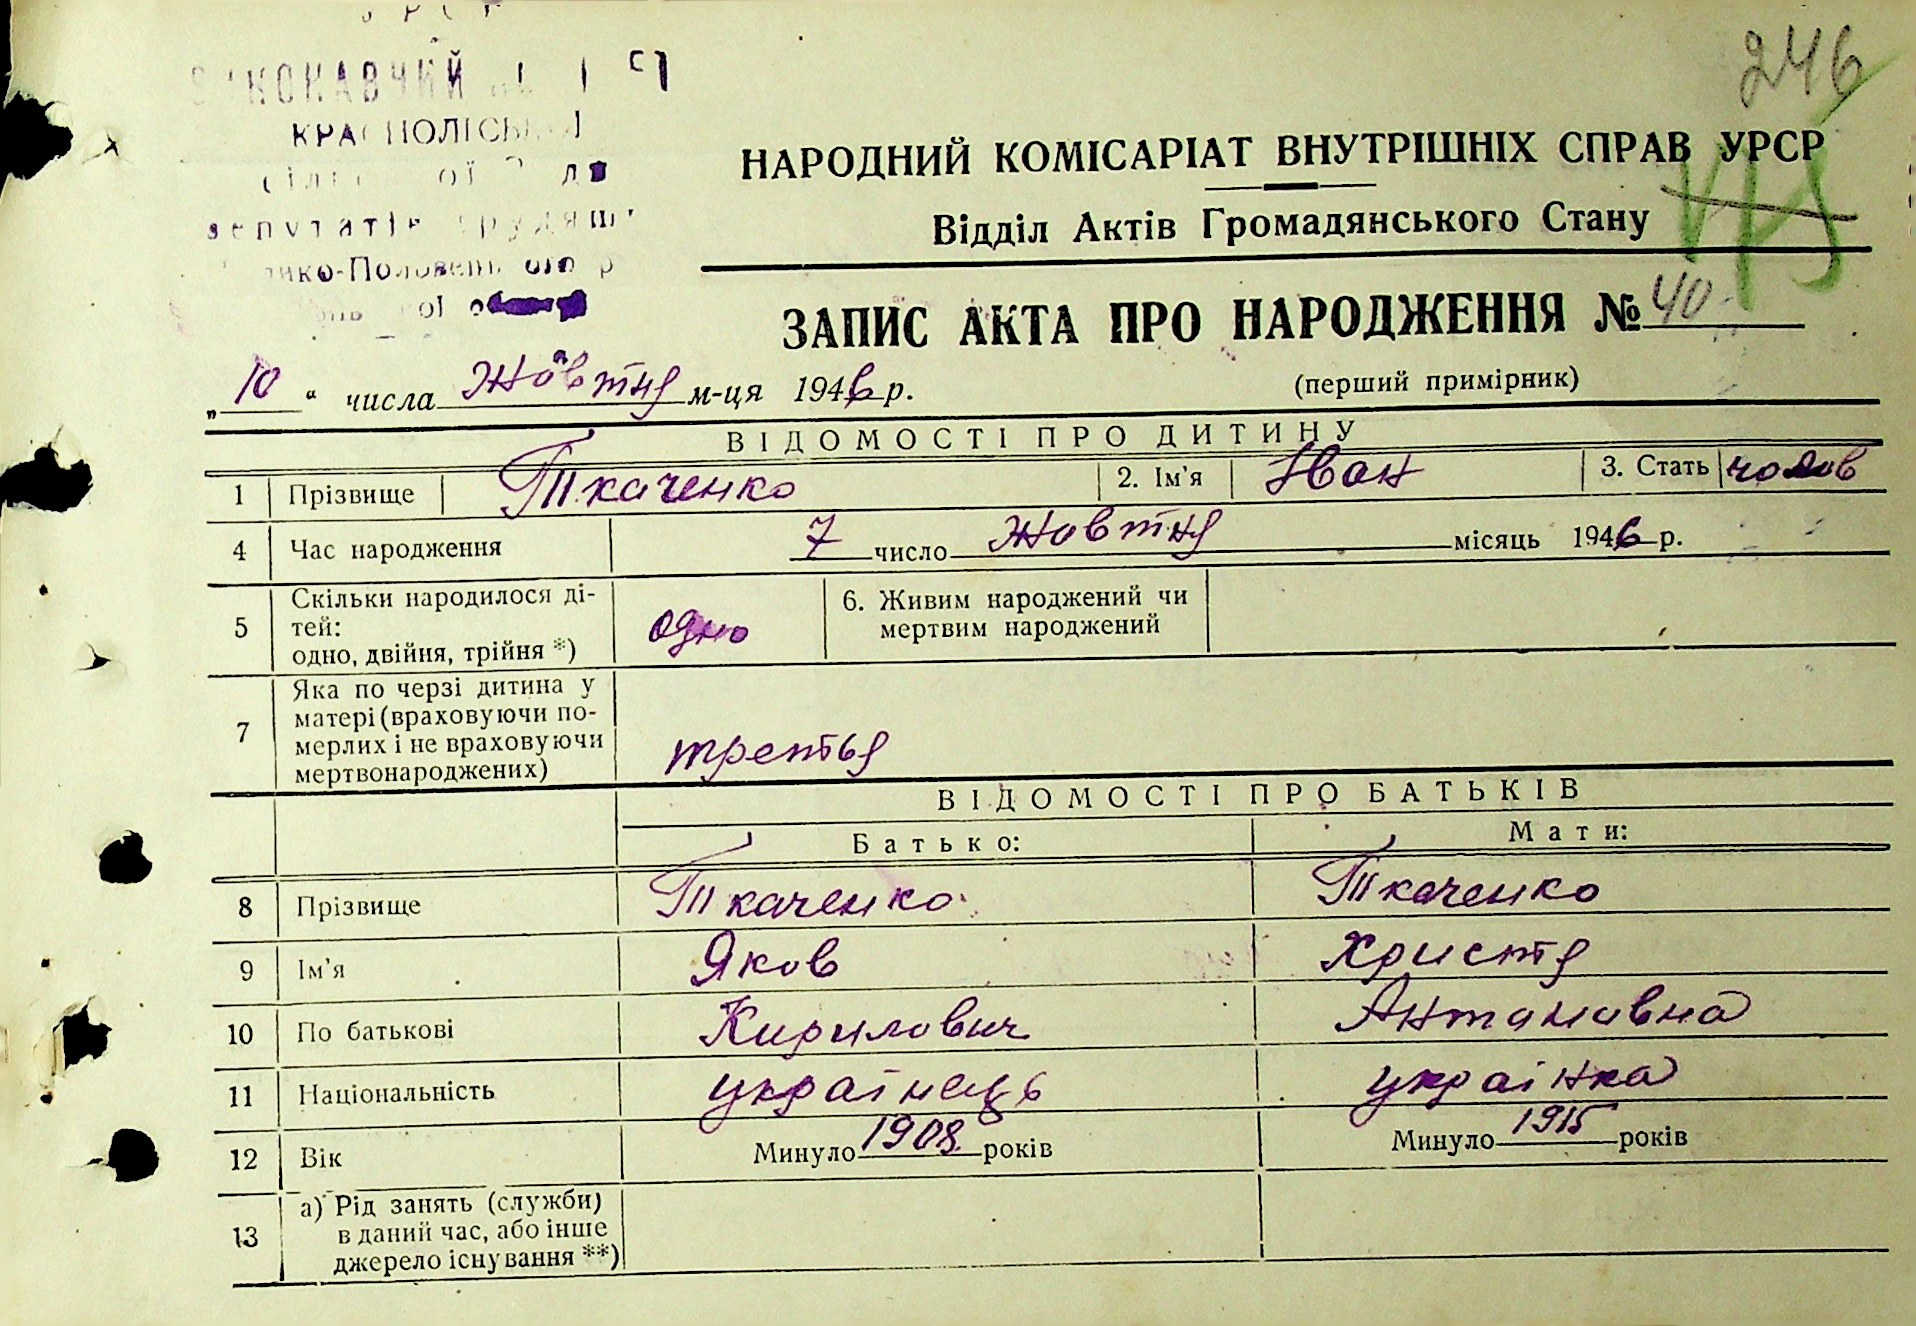 УРСР
ВИКОНАВЧИЙ
КРАСНОЛІСЬКОЇ
депутатів трудящ
246
НАРОДНИЙ КОМІСАРІАТ ВНУТРІШНІХ СПРАВ УРСР
Відділ Актів Громадянського Стану
ЗАПИС АКТА ПРО НАРОДЖЕННЯ № 40
„10“ числа Жовтня м-ця 1946 р.
(перший примірник)
ВІДОМОСТІ ПРО ДИТИНУ
1 Прізвище Ткаченко 2. Ім'я Іван 3. Стать чолов
4 Час народження 7 число Жовтня місяць 1946 р.
5 Скільки народилося ді-
тей:
одно, двійня, трійня *) одно
6. Живим народжений чи
мертвим народжений
7 Яка по черзі дитина у
матері (враховуючи по-
мерлих і не враховуючи
мертвонароджених) третья
ВІДОМОСТІ ПРО БАТЬКІВ
Батько: Мати:
8 Прізвище Ткаченко Ткаченко
9 Ім'я Яков Христя
10 По батькові Кирилович Антановна
11 Національність українець українка
12 Вік Минуло 1908 років Минуло 1915 років
13 а) Рід занять (служби)
в даний час, або інше
джерело існування **)